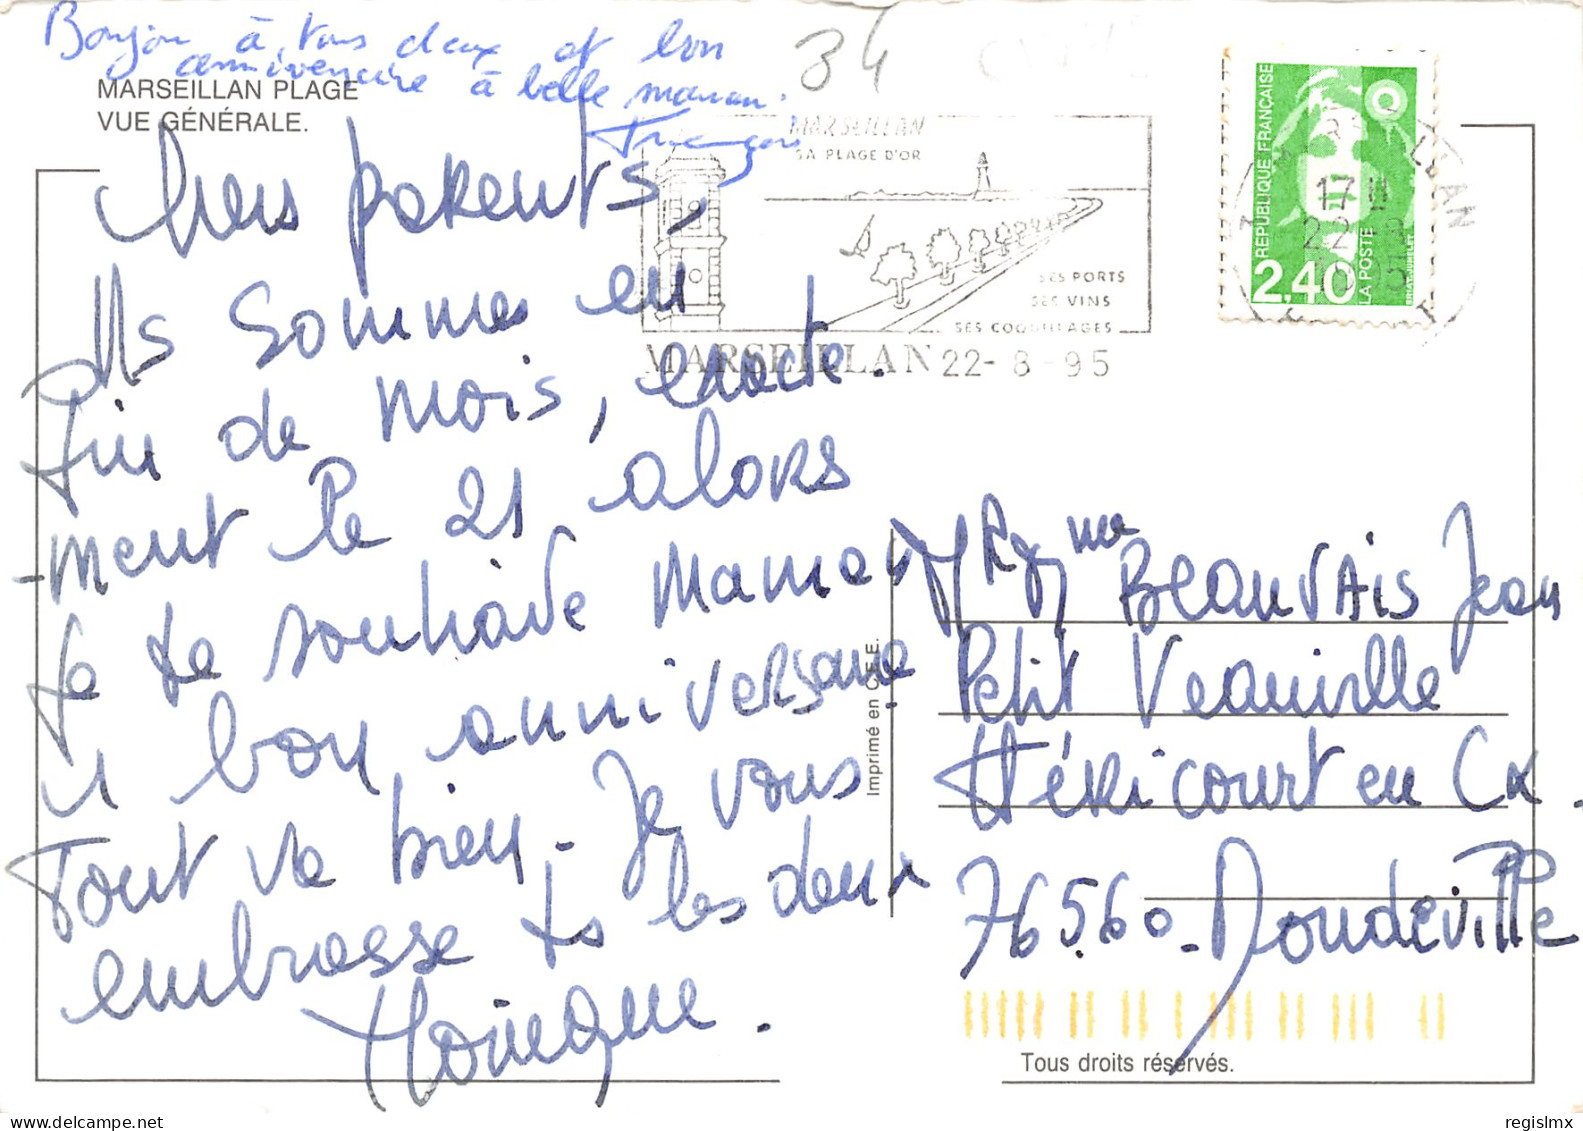 Bonjou à tous deux et bon
anniversaire à belle maman.
François
34
MARSEILLAN PLAGE
VUE GÉNÉRALE.
MARSEILLAN
SA PLAGE D'OR
SES PORTS
SES VINS
SES COQUILLAGES
MARSEILLAN 22-8-95
RÉPUBLIQUE FRANÇAISE
2,40
LA POSTE
17 H
22
Chers parents,
Ns sommes en
fin de mois, exacte.
-ment le 21 alors
je te souhaite Maman
un bon anniversaire.
Tout va bien. Je vous
embrasse ts les deux
Monique.
Imprimé en C.E.E.
Mr Mme Beauvais Jean
Petit Veauville
Héricourt en Cx.
76560 - Doudeville
Tous droits réservés.
regislmx